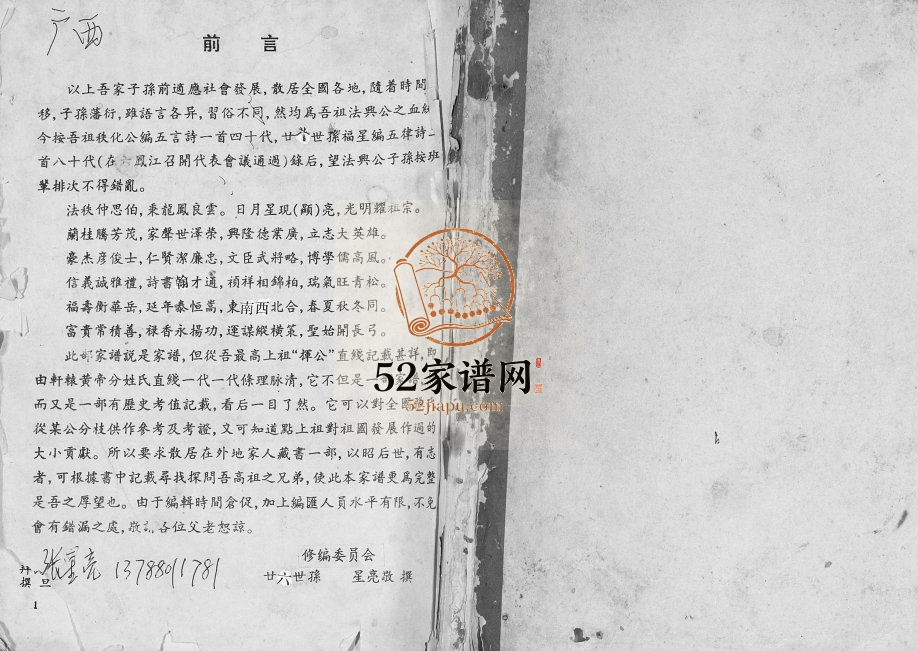 广西
前言
以上吾家子孫前適應社會發展,散居全國各地,隨着時間
移,子孫藩衍,雖語言各异,習俗不同,然均爲吾祖法興公之血
今按吾祖秩化公編五言詩一首四十代,廿 世孫福星編五律詩一
首八十代(在六鳳江召開代表會議通過)錄后,望法興公子孫按班
輩排次不得錯亂。
法秩仲思伯,秉龍鳳良雲。日月星現(顯)亮,光明耀祖宗。
蘭桂騰芳茂,家聲世澤榮,興隆德業廣,立志大英雄。
豪杰彦俊士,仁賢潔廉忠,文臣武將略,博學儒高風。
信義誠雅禮,詩書翰才通,禎祥相錦柏,瑞氣旺青松。
福壽衡華岳,延年泰恒嵩,東南西北合,春夏秋冬同。
富貴常積善,禄香永揚功,運謀縱横策,聖始開長弓。
此部家譜説是家譜,但從吾最高上祖“揮公”直綫記載甚詳,即
由軒轅黄帝分姓氏直綫一代一代條理脉清,它不但是一部家譜
而又是一部有歷史考值記載,看后一目了然。它可以對全國
從某公分枝供作參考及考證,又可知道點上祖對祖國發展作過的
大小貢獻。所以要求散居在外地家人藏書一部,以昭后世,有志
者,可根據書中記載尋找探問吾高祖之兄弟,使此本家譜更爲完整
是吾之厚望也。由于編輯時間倉促,加上編匯人員水平有限,不免
會有錯漏之處,敬請各位父老恕諒。
修編委員會
廿六世孫 星亮敬撰
拜撰
一旦
张星亮 13788011781
1
52家谱网
52jiapu.com